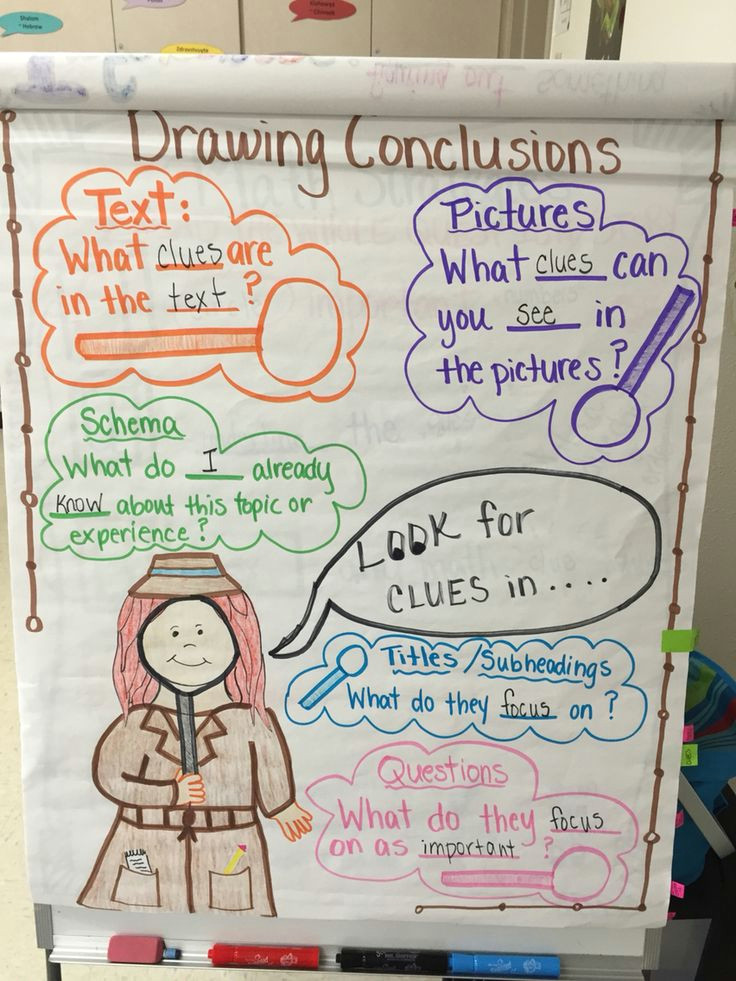 Shalom
- Hebrew
Drawing Conclusions
Text:
What clues are
in the text ?
Pictures
What clues can
you see in
the pictures?
Schema
What do I already
know about this topic or
experience?
LOOK for
CLUES in....
Titles/Subheadings
What do they focus on ?
Questions
What do they focus
on as important ?